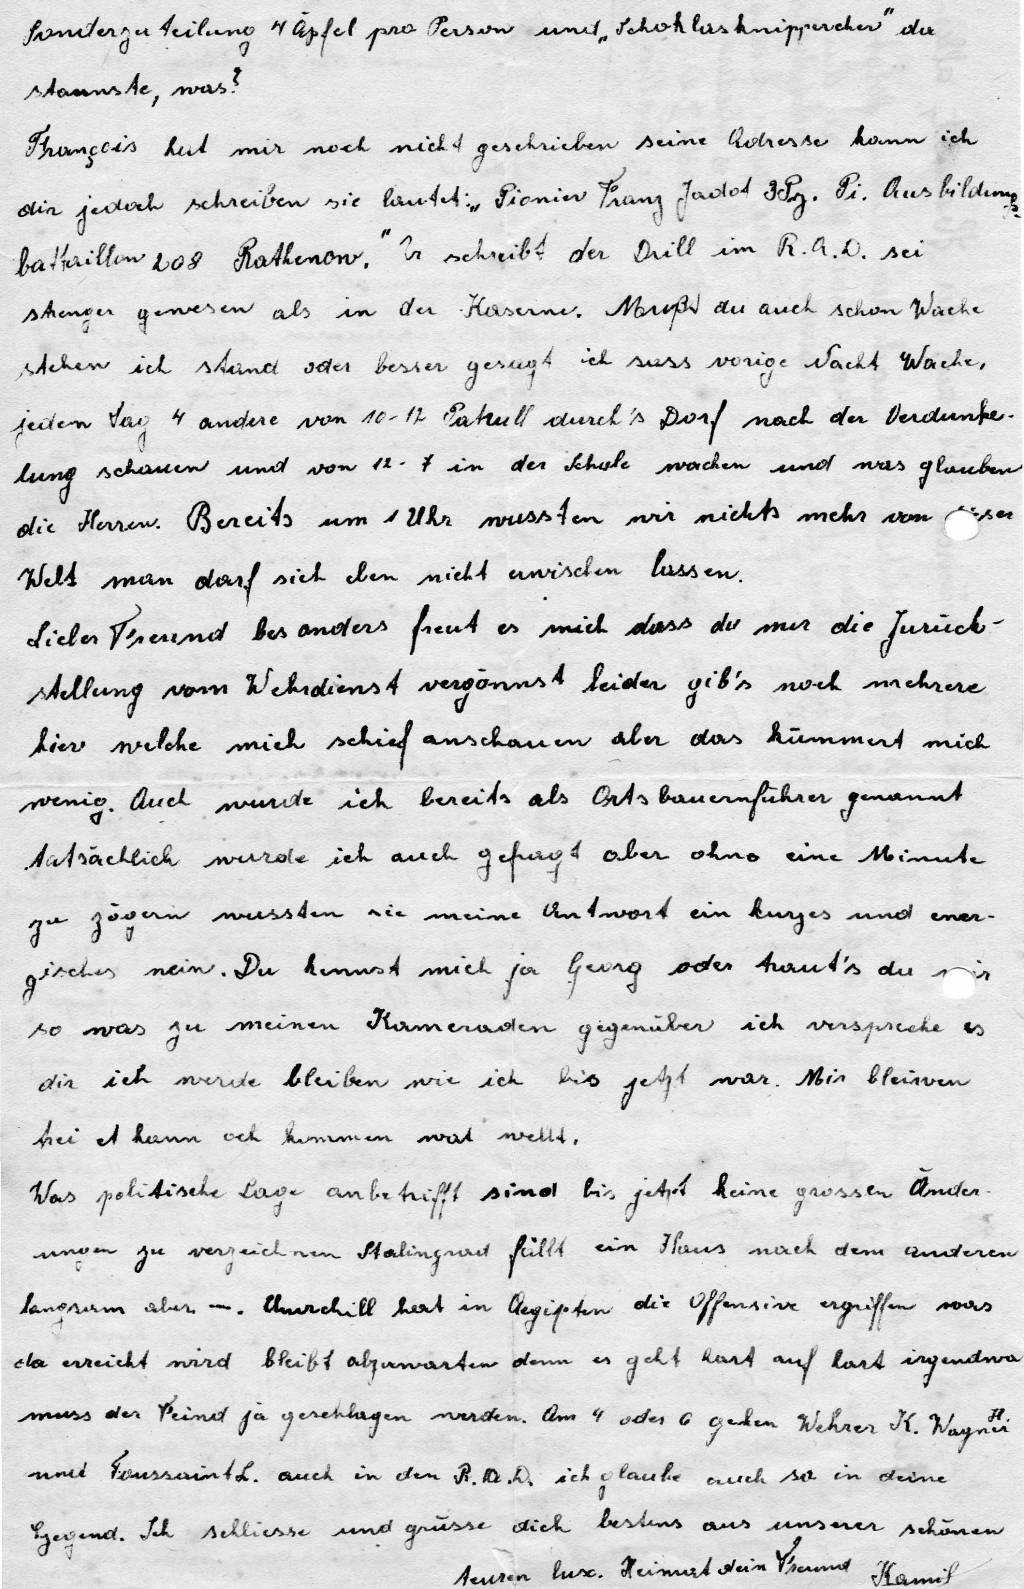 Sonderzuteilung 4 Äpfel pro Person und „Schoklasknippercher" da
staunste, was?
François hat mir noch nicht geschrieben seine Adresse kann ich
dir jedoch schreiben sie lautet: „ Pionier Franz Jadot 3 Pz. Pi. Ausbildungs-
battaillon 208 Rathenow." Er schreibt der Drill im R.A.D. sei
strenger gewesen als in der Kaserne. Mußt du auch schon Wache
stehen ich stand oder besser gesagt ich sass vorige Nacht Wache,
jeden Tag 4 andere von 10-12 Patrull durch's Dorf nach der Verdunke-
lung schauen und von 12-7 in der Schule wachen und was glauben
die Herren. Bereits um 1 Uhr wussten wir nichts mehr von dieser
Welt man darf sich eben nicht erwischen lassen.
Lieber Freund besonders freut es mich dass du mir die Zurück-
stellung vom Wehrdienst vergönnst leider gib's noch mehrere
hier welche mich schief anschauen aber das kümmert mich
wenig. Auch wurde ich bereits als Ortsbauernführer genannt
tatsächlich wurde ich auch gefragt aber ohne eine Minute
zu zögern wussten sie meine Antwort ein kurzes und ener-
gisches nein. Du kennst mich ja Georg oder traut's du mir
so was zu meinen Kameraden gegenüber ich verspreche es
dir ich werde bleiben wie ich bis jetzt war. Mir bleiwen
trei et kann och kommen wat wellt.
Was politische Lage anbetrifft sind bis jetzt keine grossen Änder-
ungen zu verzeichnen Stalingrad fällt ein Haus nach dem anderen
langsam aber —. Churchill hat in Aegipten die Offensive ergriffen was
da erreicht wird bleibt abzuwarten denn es geht hart auf hart irgendwo
muss der Feind ja geschlagen werden. Am 4 oder 6 gehen Wehrer K. Wagner H.
und Toussaint L. auch in den R.A.D. ich glaube auch so in deine
Gegend. Ich schliesse und grüsse dich bestens aus unserer schönen
teuren lux. Heimat dein Freund Kamil